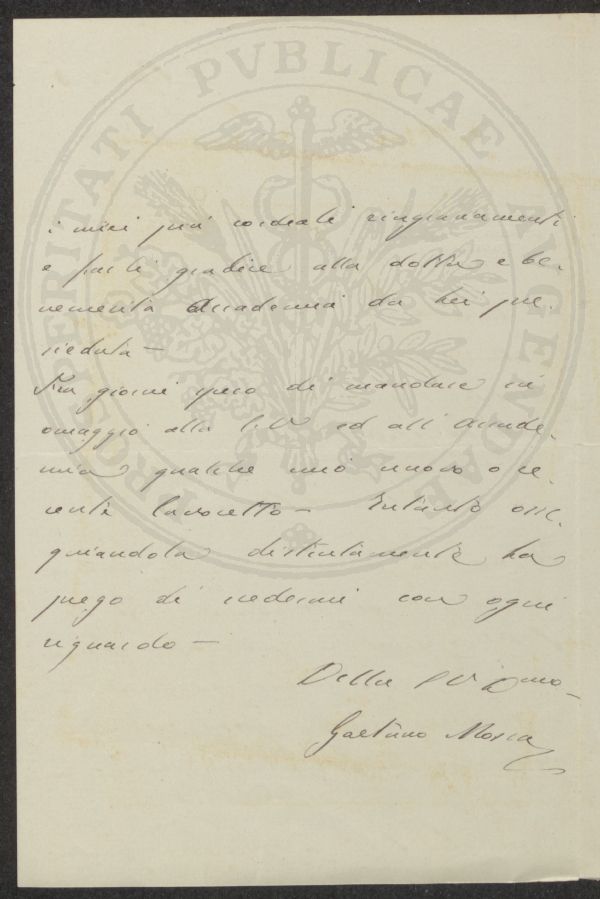 PROSPERITATI PVBLICAE AVGENDAE
i miei più cordiali ringraziamenti
e farli gradire alla dotta e be-
nemerita Accademia da Lei pre-
sieduta —
Fra giorni spero di mandare in
omaggio alla S.V ed all' Accade-
mia qualche mio nuovo o re-
cente lavoretto — Intanto osse-
quiandola distintamente La
prego di credermi con ogni
riguardo —
Della S V Dmo
Gaetano Mosca